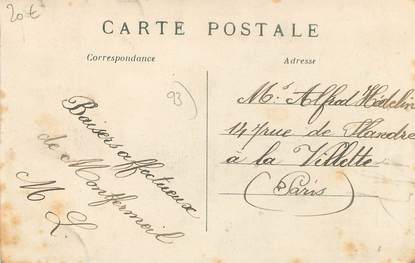 20€
CARTE POSTALE
Correspondance
Adresse
93
Baisers affectueux
de Montfermeil
M L.
Mr Alfred Hédelin
147 rue de Flandre
à la Villette
(Paris)